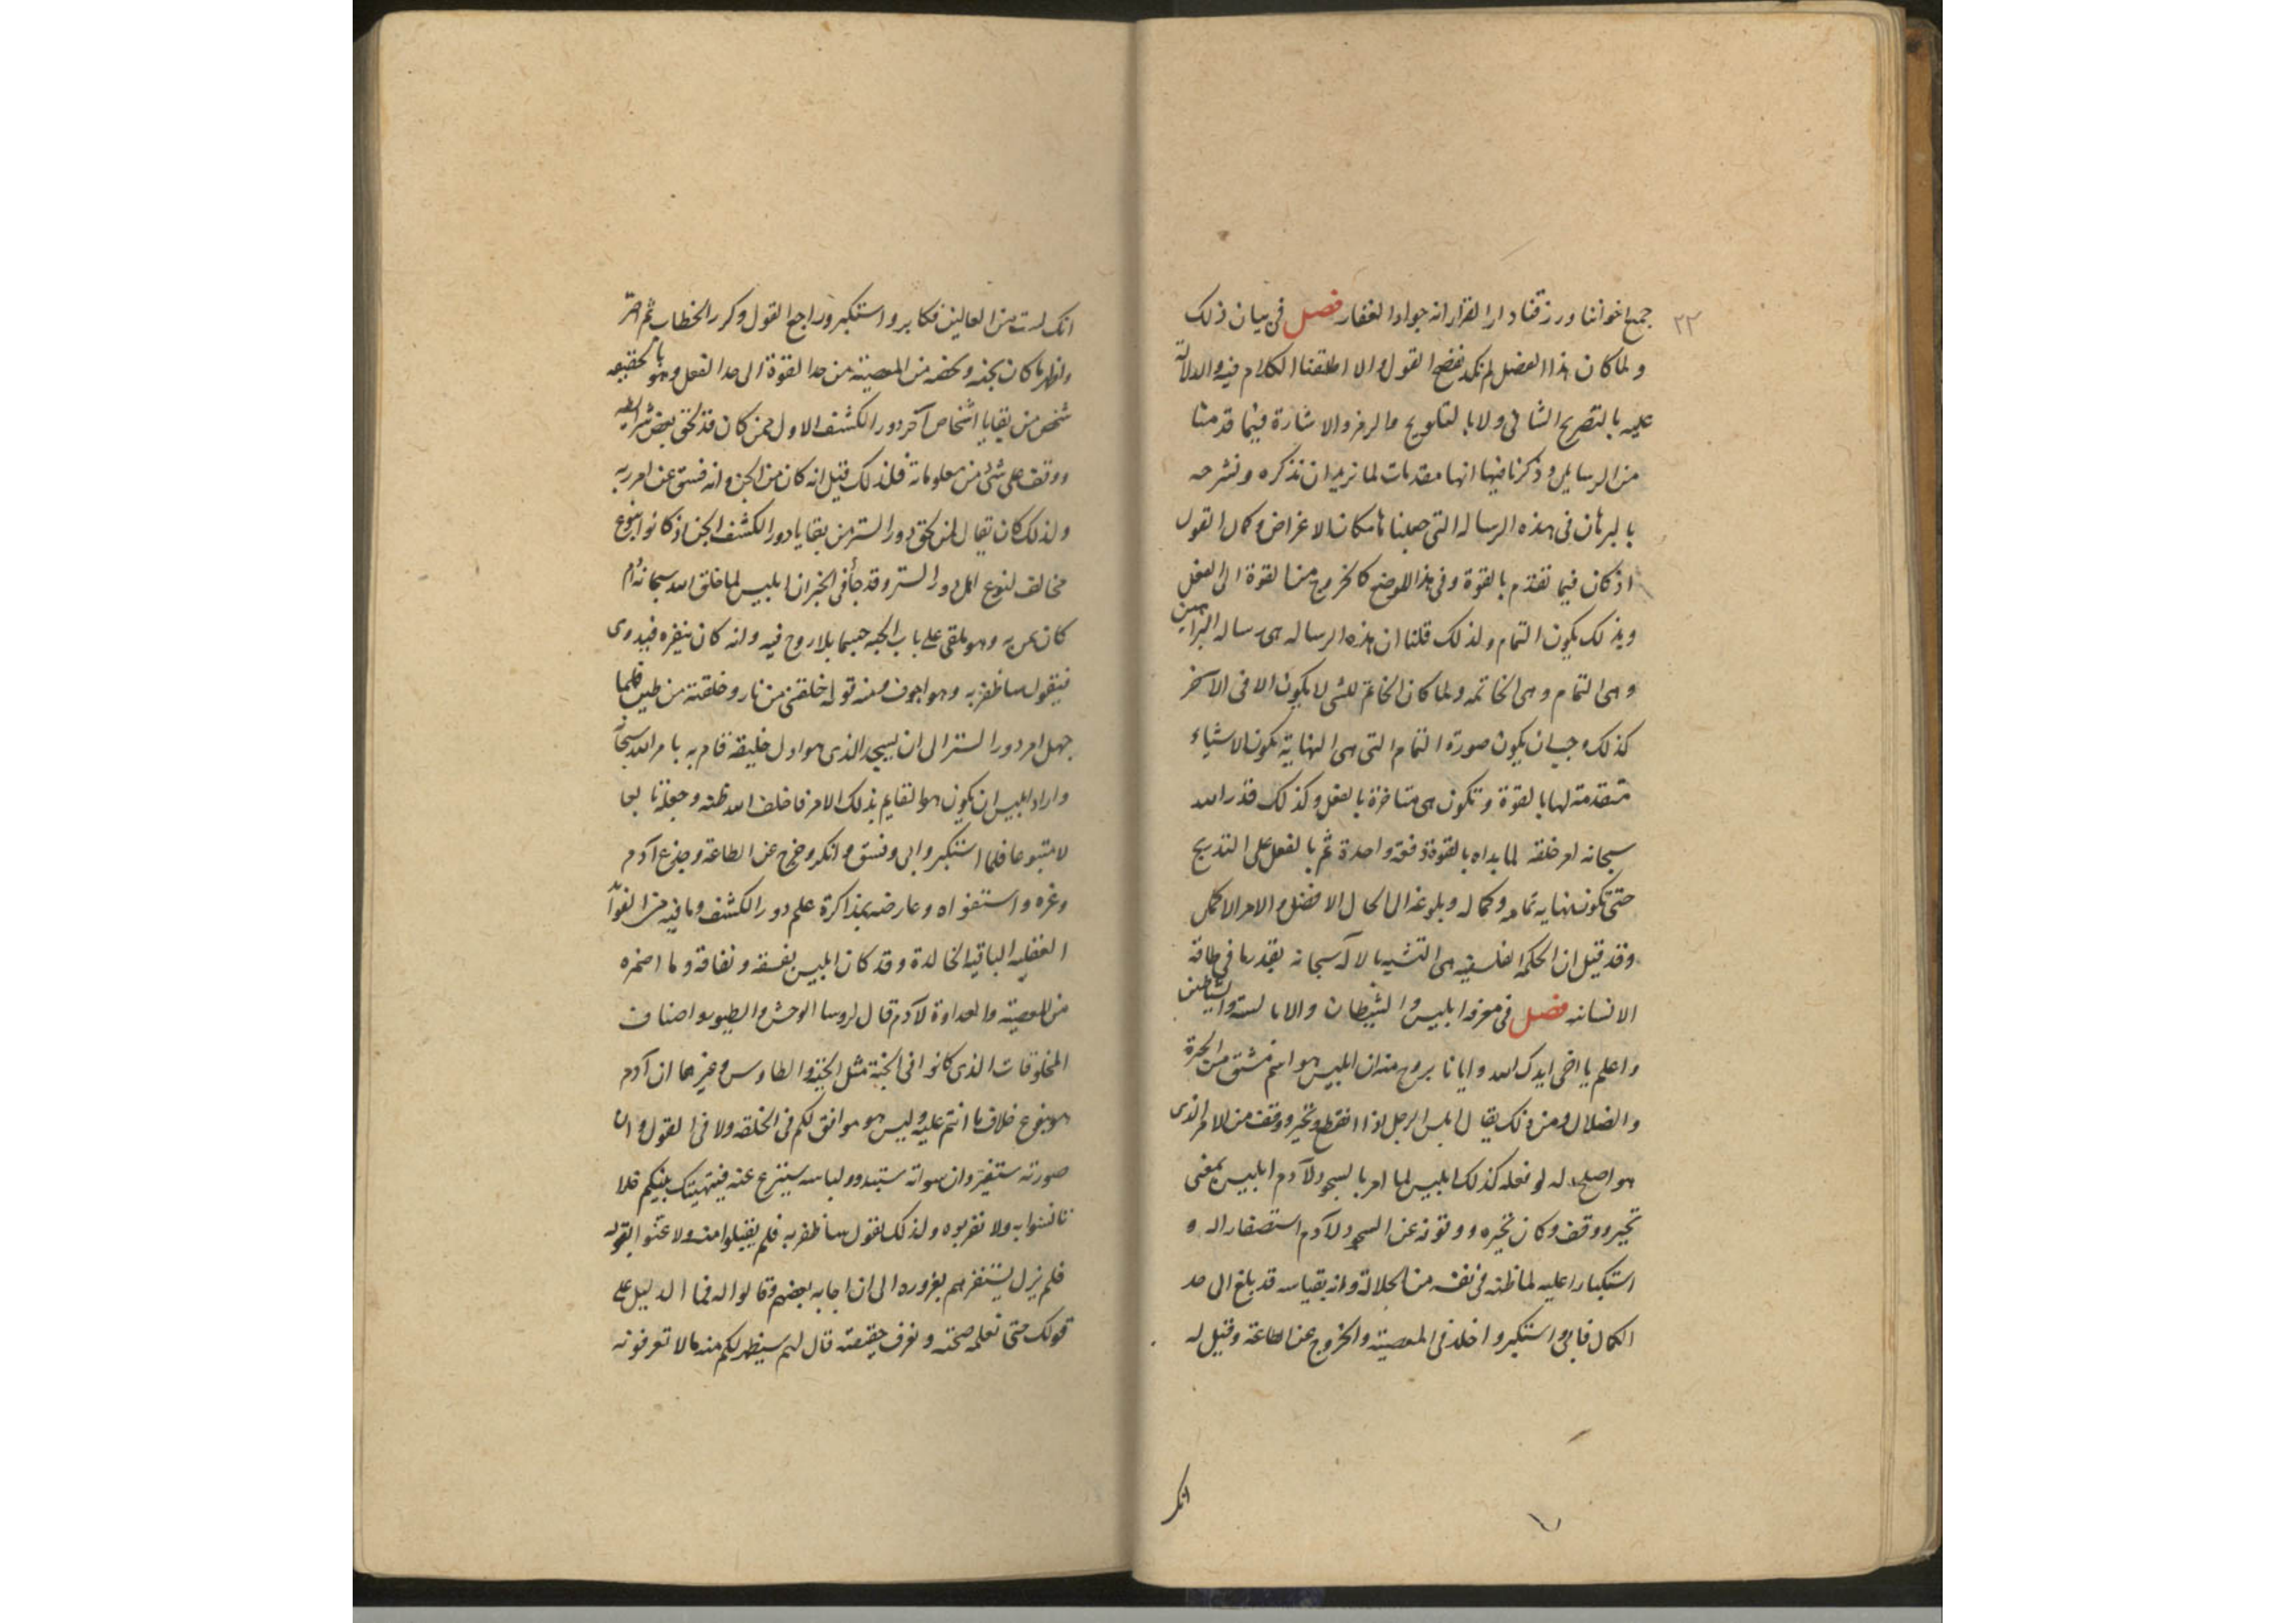 ٢٢
جميع اخواننا ورزقنا دار القرار انه جواد الغفار فصل فى بيان ذلك
ولما كان هذا الفصل لم نكد نفضح القول ولا اطلقنا الكلام فيه والدلالة
عليه بالتصريح الشافى ولا بالتلويح والرمز والاشارة فيما قدمنا
من الرسايل وذكرنا فيها انها مقدمات لما نريد ان نذكره ونشرحه
بالبرهان فى هذه الرساله التى جعلناها مكان الاغراض وكمال القول
اذ كان فيما تقدم بالقوة وفى هذا الموضع كالخروج من القوة الى الفعل
وبذلك يكون التمام ولذلك قلنا ان هذه الرساله هى رساله البراهين
وهى التمام وهى الخاتمه ولما كان الخاتم للشى لا يكون الا فى الآخر
كذلك وجب ان يكون صورة التمام التى هى النهاية تكون الاشياء
متقدمة لها بالقوة وتكون هى متاخرة بالفعل وكذلك قدر الله
سبحانه امر خلقه لما بداه بالقوة دفقه واحدة ثم بالفعل على التدريج
حتى تكون نهايه تمامه وكماله وبلوغه الى الحال الافضل والامر الاكمل
وقد قيل ان الحكمه الفلسفيه هى التشبه بالاله سبحانه بقدر ما فى طاقه
الانسانه فصل فى معرفه ابليس والشيطان والابالسة والشياطين
واعلم يا اخى ايدك الله وايانا بروح منه ان ابليس هو اسم مشتق من الحيرة
والضلال ومن ذلك يقال ابلس الرجل اذا انقطع وتحير ووقف من الامر الذى
هو اصلح له لو فعله كذلك ابليس لما امر بالسجود لآدم ابليس بمعنى
تحير ووقف وكان تحيره ووقوفه عن السجود لآدم استصغارا له و
استكبارا عليه لما ظنه فى نفسه من الجلالة وانه بقياسه قد بلغ الى حد
الكمال فابى واستكبر واخذ فى المعصية والخروج عن الطاعة وقيل له
انك
انك لست من العالين فكابر واستكبر وراجع القول وكرر الخطاب ثم اصر
واظهر ما كان يجنه ويخفه من المعصية من حد القوة الى حد الفعل وهو بالحقيقه
شخص من بقايا اشخاص آخر دور الكشف الاول ممن كان قد لحق بعض شرايطه
ووقف على شئ من معلوماته فلذلك قيل انه كان من الجن وانه فسق عن امر ربه
ولذلك كان يقال لمن لحق دور الستر من بقايا دور الكشف الجن اذ كانوا بنوع
مخالف لنوع اهل دور الستر وقد جأ فى الخبر ان ابليس لما خلق الله سبحانه آدم
كان يمر به وهو ملقى على باب الجنه جسما بلا روح فيه وانه كان ينقره فيدوى
فيقول ساظفر به وهو اجوف ومنه قوله خلقتنى من نار وخلقته من طين فلما
جهل امر دور الستر الى ان يسجد الذى هو اول خليقه قام به بامر الله سبحانه
واراد ابليس ان يكون هو القايم بذلك الامر فاخلف الله ظنه وجعله تابعا
لا متبوعا فلما استكبر وابى وفسق وانكر وخرج عن الطاعة وخدع آدم
وغره واستغواه وعارضه بمذاكرة علم دور الكشف وما فيه من الفوآ
العقليه الباقيه الخالدة وقد كان ابليس بفسقه ونفاقه وما اضمره
من المعصية والعداوة لآدم قال لروسا الوحش والطيور واصناف
المخلوقات الذى كانوا فى الجنة مثل الحية والطاوس وغيرهما ان آدم
هو بنوع خلاف ما انتم عليه وليس هو موافق لكم فى الخلقه ولا فى القول وان
صورته ستتغير وان سواته ستبدو ولباسه سينزع عنه فيتهتك بينكم فلا
تانسوا به ولا تقربوه ولذلك نقول ساظفر به فلم يقبلوا منه ولا عنوا بقوله
فلم يزل يستنفرهم بغروره الى ان اجابه بعضهم وقالوا له فما الدليل على
قولك حتى نعلم صحته ونعرف حقيقته قال لهم سيظهر لكم منه ما لا تعرفونه